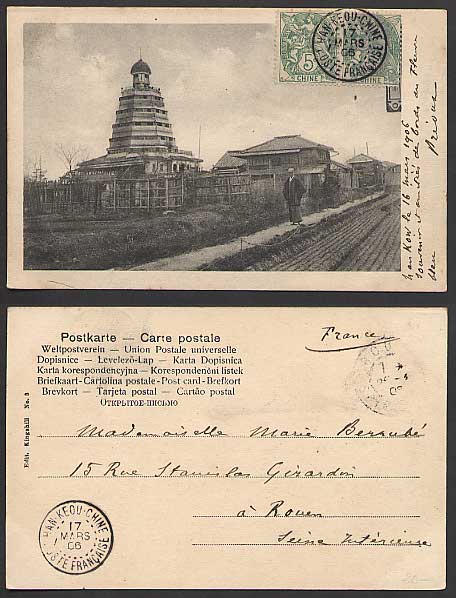 5
CHINE
CHINE
HAN-KEOU-CHINE
17
MARS
06
POSTE FRANÇAISE
Han Kow le 16 mars 1906
souvenir et amitiés des bords du fleuve
bleu
Postkarte — Carte postale
Weltpostverein — Union Postale universelle
Dopisnice — Levelező-Lap — Karta Dopisnica
Karta korespondencyjna — Korespondenční lístek
Briefkaart - Cartolina postale - Post card - Brefkort
Brevkort — Tarjeta postal — Cartão postal
ОТКРЫТОЕ ПИСЬМО
France
Edit. Kingshill No. 3
Mademoiselle Marie Berrubé
15 Rue Stanislas Girardin
à Rouen
Seine Inférieure
HAN-KEOU-CHINE
17
MARS
06
POSTE FRANÇAISE